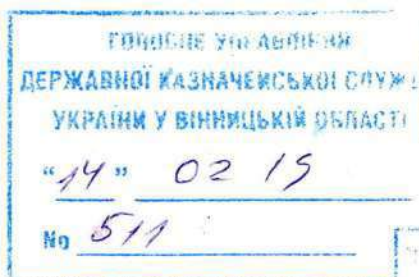 ГОЛОВНЕ УПРАВЛІННЯ
ДЕРЖАВНОЇ КАЗНАЧЕЙСЬКОЇ СЛУЖ
УКРАЇНИ У ВІННИЦЬКІЙ ОБЛАСТІ
"14" 02 19
№ 511